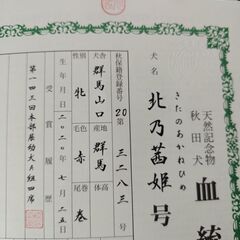 天然記念物
秋田犬
血統
犬名
きたのあかねひめ
北乃茜姫号
秋保籍登録番号 20第三二八三号
犬舎 群馬山口
産地 群馬
体高
性別 牝
毛色 赤
尾巻 巻
生年月日 二〇二〇年七月二五日
受賞履歴
第一四三回本部展幼犬A組四席